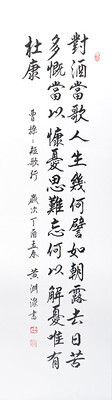 對酒當歌人生幾何譬如朝露去日苦
多慨當以慷憂思難忘何以解憂唯有
杜康
曹操 短歌行 歲次丁酉 春 黃 書